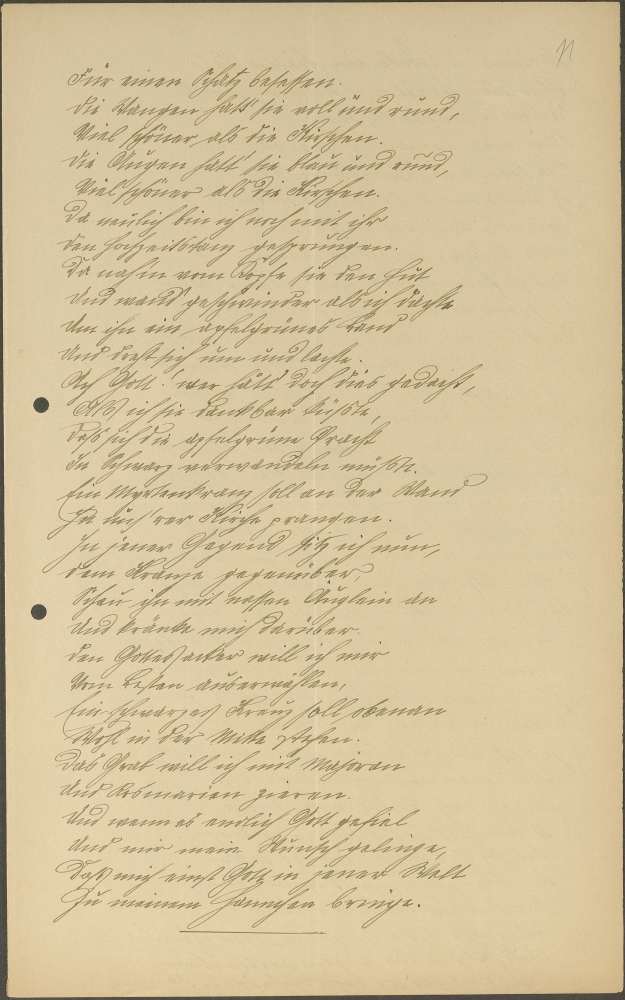 11
Für einen Schatz besessen.
Die Wangen hatt' sie voll und rund,
Viel schöner als die Kirschen.
Die Augen hatt' sie blau und rund,
Viel schöner als die Kirschen.
Da neulich bin ich noch mit ihr
Den Hochzeitstanz gesprungen.
Da nahm vom Kopfe sie den Hut
Und wand geschwinder als ich dachte
Um ihn ein apfelgrünes Band
Und dreht sich um und lachte.
Ach Gott! wer hätt' doch dies gedacht,
Als ich sie dankbar küßte,
Daß sich die apfelgrüne Pracht
In Schwarz verwandeln müßte.
Ein Myrtenkranz soll an der Wand
In uns'rer Kirche prangen.
In jener Gegend sitz ich nun,
Dem Kranze gegenüber,
Schau ihn mit nassen Äuglein an
Und kränke mich darüber.
Den Gottesacker will ich mir
Vom Besten auserwählen,
Ein schwarzes Kreuz soll obenan
Wohl in der Mitte stehen.
Das Grab will ich mit Majoran
Und Rosmarien zieren.
Und wenn es endlich Gott gefiel
Und mir mein Wunsch gelinge,
Daß mich einst Gott in jener Welt
Zu meinem Hannchen bringe.